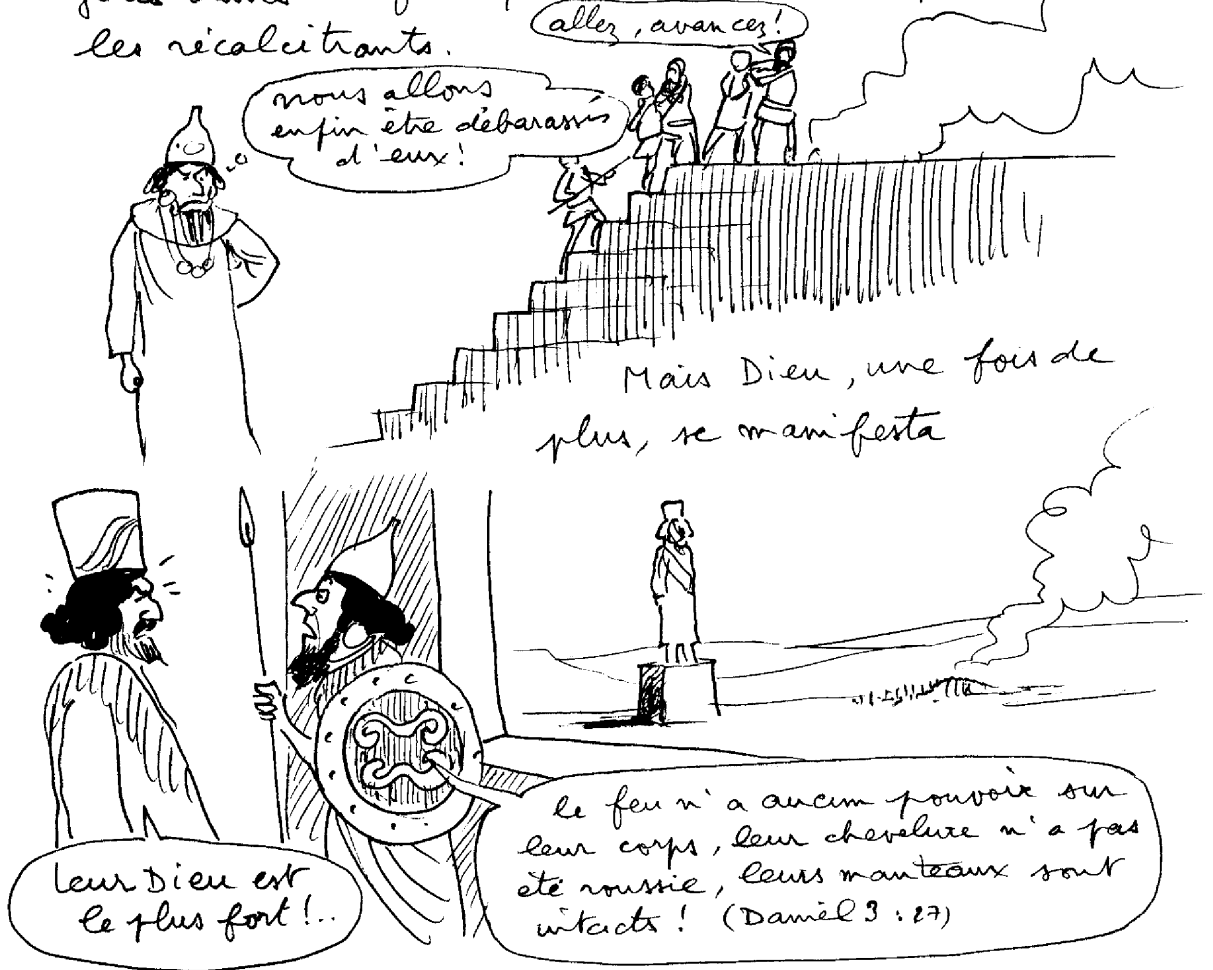 les récalcitrants.
allez, avancez!
nous allons
enfin être débarassés
d'eux!
Mais Dieu, une fois de
plus, se manifesta
leur Dieu est
le plus fort!..
le feu n'a aucun pouvoir sur
leur corps, leur chevelure n'a pas
été roussie, leurs manteaux sont
intacts! (Daniel 3:27)